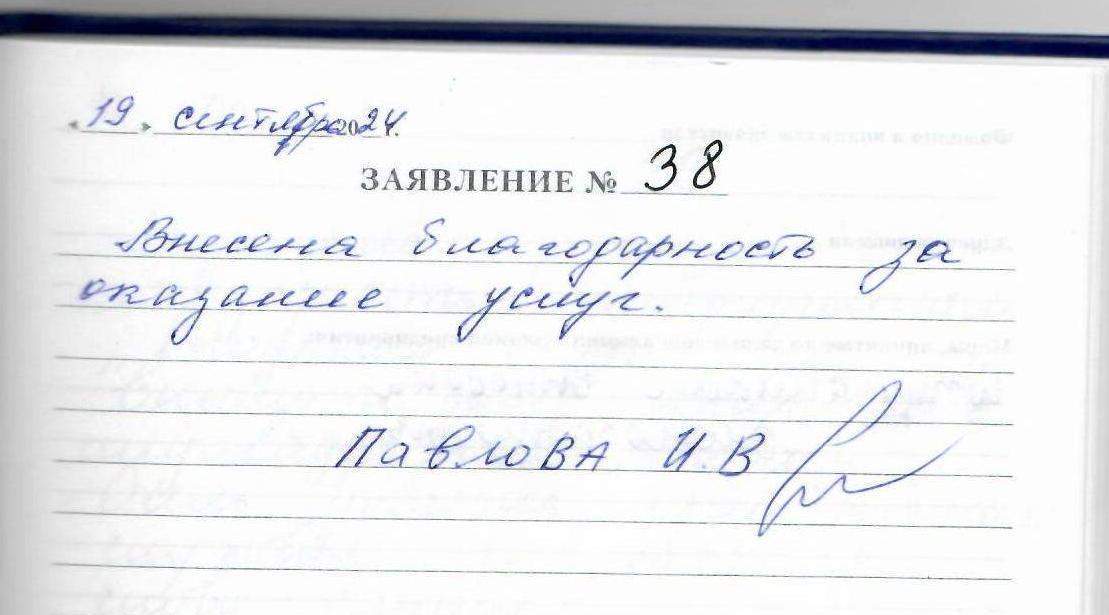 «19» сентября 2024.
ЗАЯВЛЕНИЕ № 38
Внесена благодарность за
оказание услуг.
Павлова И.В